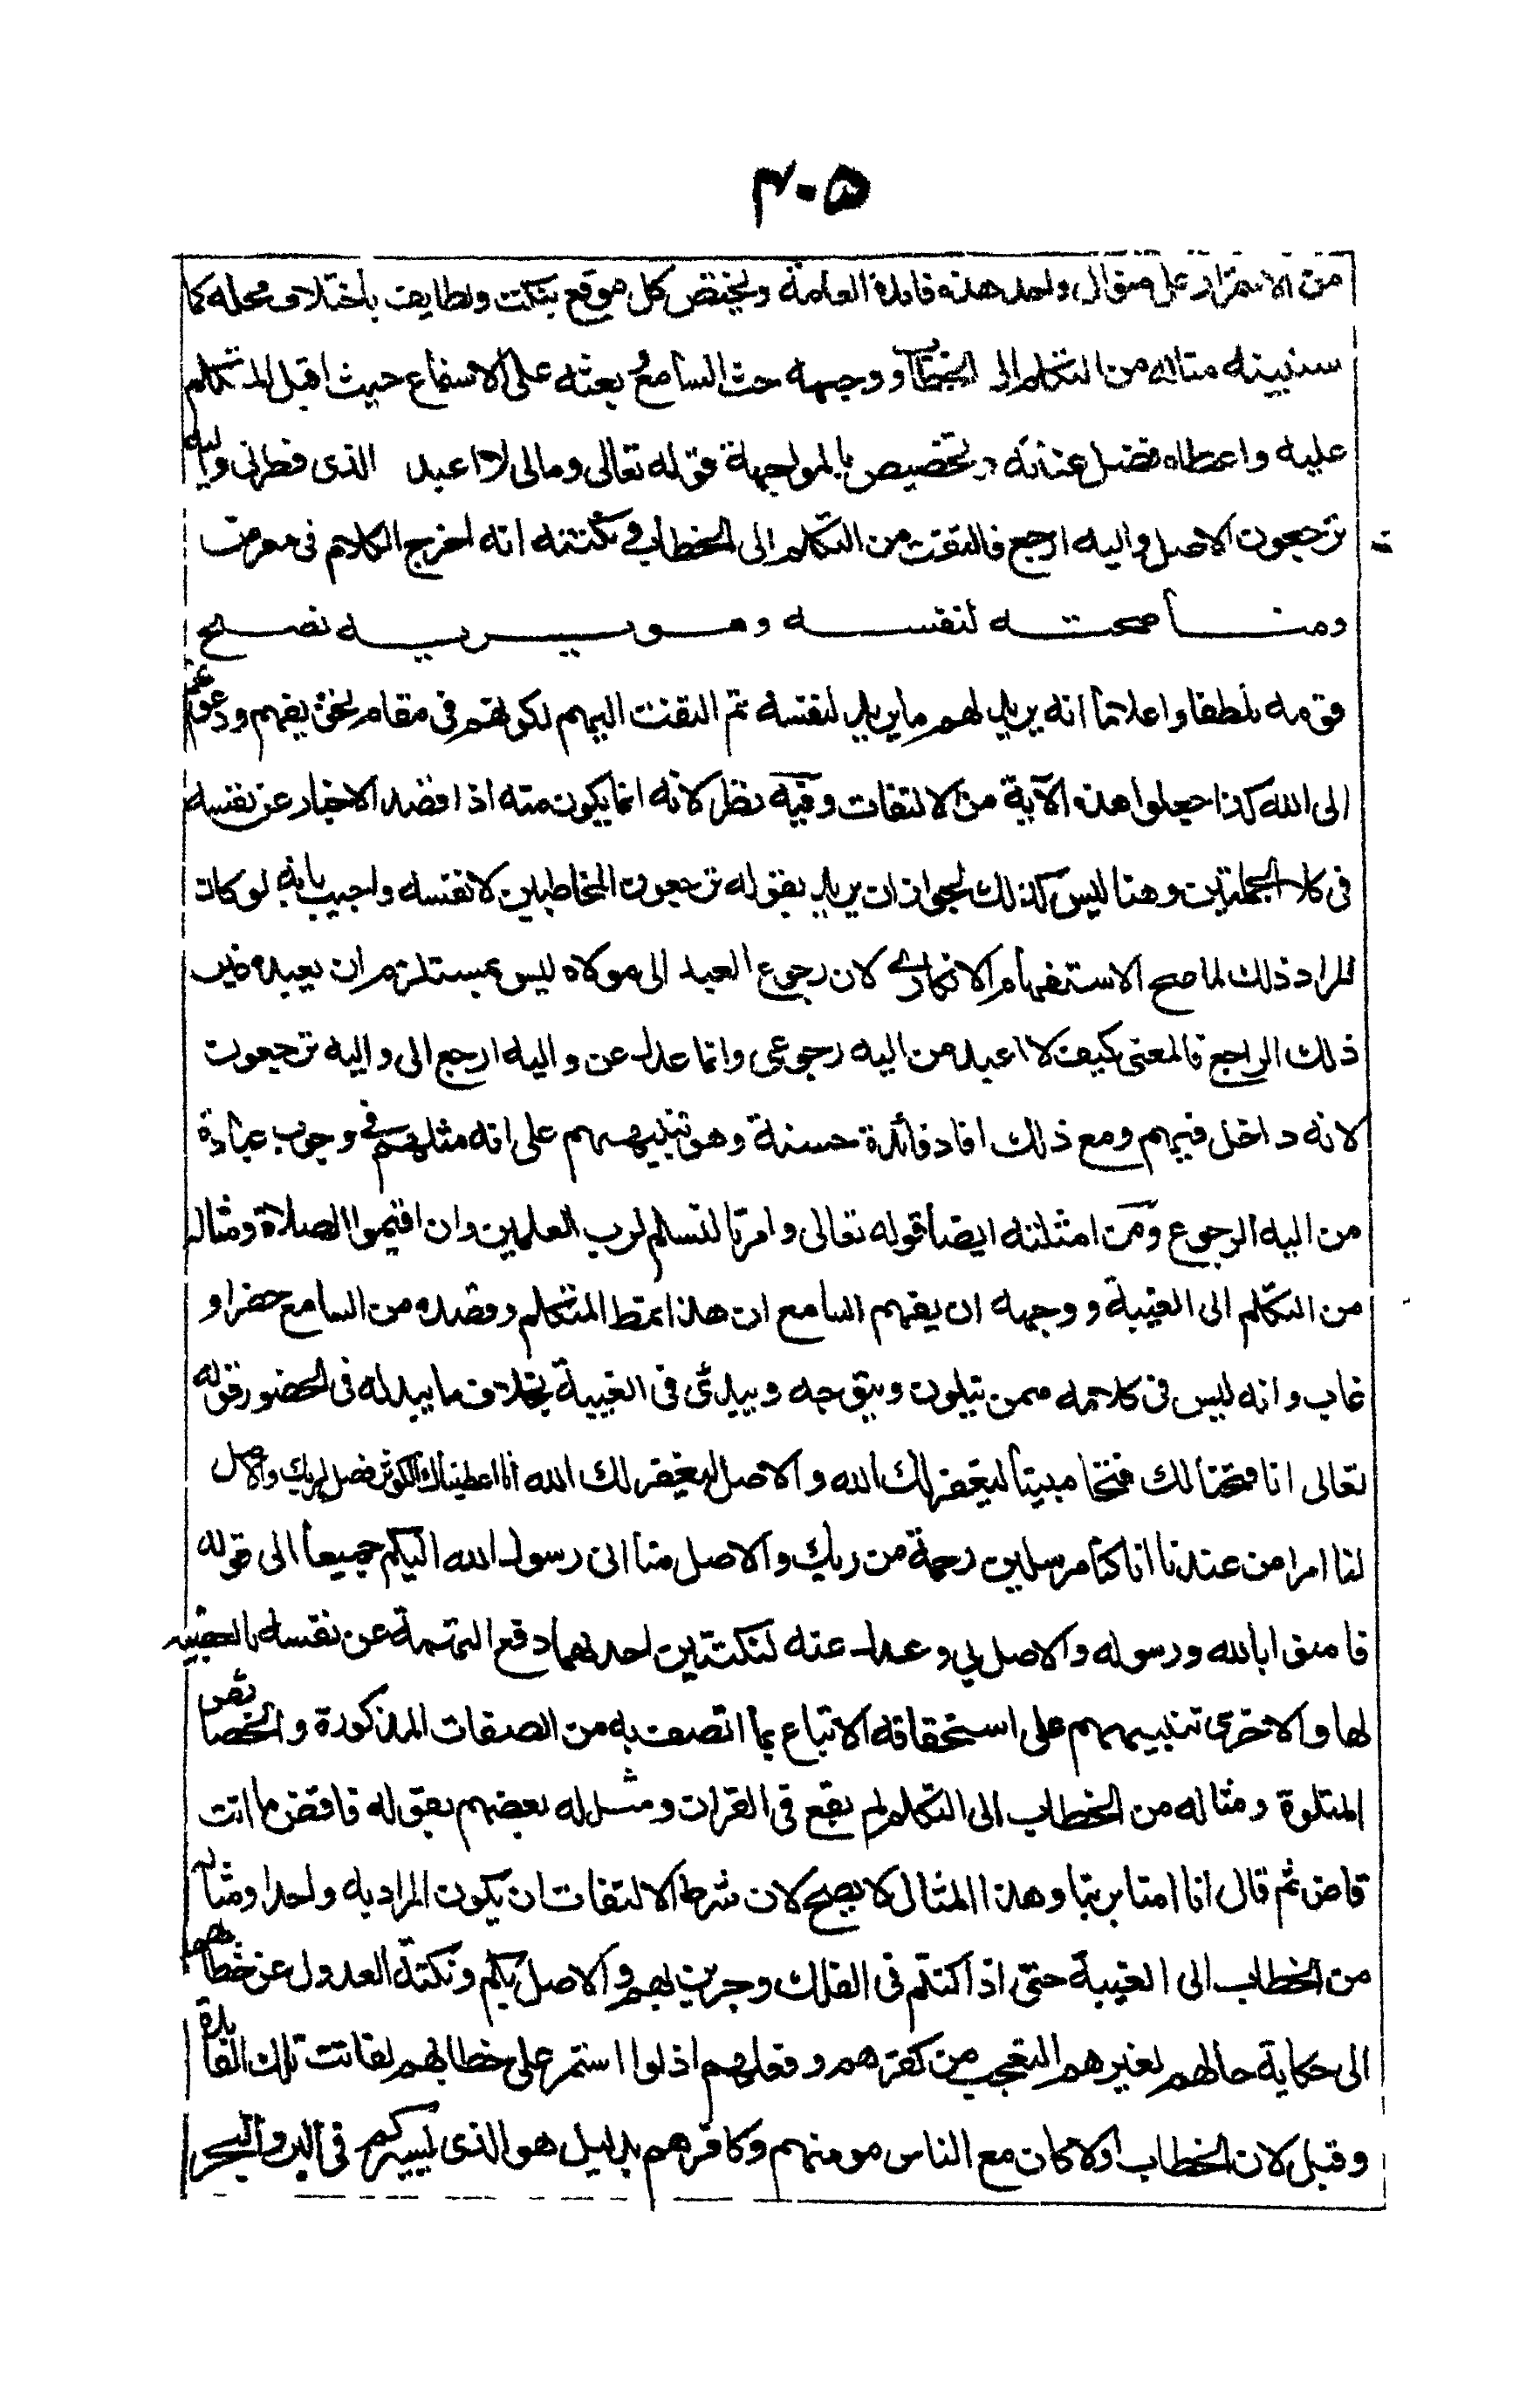 ٣٠۵
من الاستمرار على منوال واحد هذه فايدة العامة ويختص كل موقع بنكت ولطايف باختلاف محله كما
سنبينه مثاله من التكلم الى الخطاب ووجهه حث السامع بعثه على الاستماع حيث اقبل المتكلم
عليه واعطاه فضل عناية وتخصيص بالمواجهة قوله تعالى ومالى لا اعبد الذى فطرنى واليه
ترجعون الاصل واليه ارجع فالتفت من التكلم الى الخطاب ونكتته انه اخرج الكلام فى معرض
ومناصحته لنفسه وهو يريد نصح
قومه تلطفا واعلاما انه يريد لهم مايريد لنفسه ثم التفت اليهم لكونهم فى مقام تخويفهم ودعوتهم
الى الله كذا جعلوا هذه الآية من الالتفات وفيه نظر لانه انما يكون منه اذا قصد الاخبار عن نفسه
فى كلا الجملتين وهنا ليس كذلك لجواز ان يريد بقوله ترجعون المخاطبين لا نفسه واجيب بانه لو كان
المراد ذلك لما صح الاستفهام الانكارى لان رجوع العبد الى مولاه ليس بمستلزم ان يعبده غير
ذلك الراجع فالمعنى كيف لا اعبد من اليه رجوعى وانما عدل عن واليه ارجع الى واليه ترجعون
لانه داخل فيهم ومع ذلك افاد فائدة حسنة وهو تنبيههم على انه مثلهم فى وجوب عبادة
من اليه الرجوع ومن امثلته ايضا قوله تعالى وامرنا لنسلم لرب العلمين وان اقيموا الصلاة ومثاله
من التكلم الى الغيبة ووجهه ان يفهم السامع ان هذا نمط المتكلم وقصده من السامع حضر او
غاب وانه ليس فى كلامه ممن يتلون ويتوجه ويبدئ فى الغيبة بخلاف ما يبديه فى الحضور قوله
تعالى انا فتحنا لك فتحا مبينا ليغفر لك الله والاصل ليغفر لك الله انا اعطيناك الكوثر فصل لربك والاصل
لنا امرا من عندنا انا كنا مرسلين رحمة من ربك والاصل منا انى رسول الله اليكم جميعا الى قوله
فامنوا بالله ورسوله والاصل بى وعدل عنه لنكتتين احدهما دفع التهمة عن نفسه بالعصبية
لها والاخرى تنبيههم على استحقاقه الاتباع بما اتصف به من الصفات المذكورة والخصائص
المتلوة ومثاله من الخطاب الى التكلم لم يقع فى القران ومثل له بعضهم بقوله فاقض ما انت
قاض ثم قال انا امنا بربنا وهذا المثال لا يصح لان شرط الالتفات ان يكون المراد به واحدا ومثاله
من الخطاب الى الغيبة حتى اذا كنتم فى الفلك وجرين بهم والاصل بكم ونكتة العدول عن خطابهم
الى حكاية حالهم لغيرهم التعجب من كفرهم وفعلهم اذ لو استمر على خطابهم لفاتت تلك الفايدة
وقيل لان الخطاب اولا كان مع الناس مومنهم وكافرهم بدليل هو الذى يسيركم فى البر والبحر